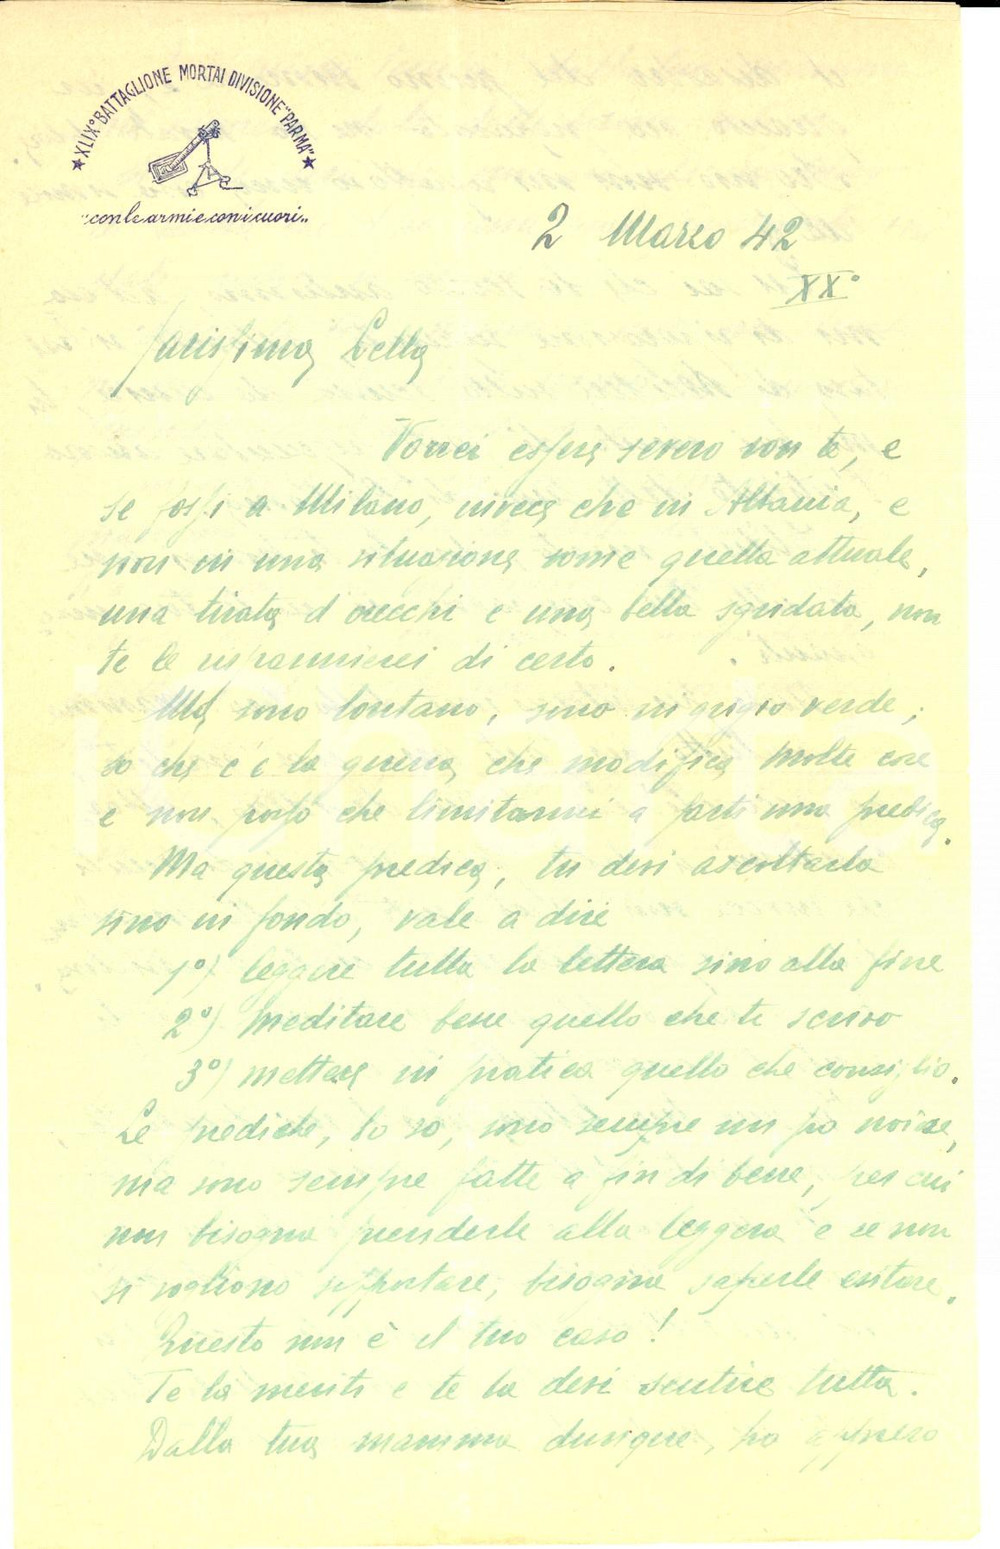 ★ XLIX° BATTAGLIONE MORTAI DIVISIONE "PARMA" ★
"con le armi e con i cuori"
2 Marzo 42
XX°
Carissima Lella
Vorrei essere severo con te, e
se fossi a Milano, invece che in Albania, e
non in una situazione come quella attuale,
una tirata d'orecchi e una bella sgridata, non
te le risparmierei di certo.
Ma sono lontano, sono in grigio verde;
so che c'è la guerra, che modifica molte cose
e non posso che limitarmi a farti una predica.
Ma questa predica, tu devi ascoltarla
sino in fondo, vale a dire
1°) leggere tutta la lettera sino alla fine
2°) meditare bene quello che ti scrivo
3°) mettere in pratica quello che consiglio.
Le prediche, lo so, sono sempre un po noiose,
ma sono sempre fatte a fin di bene, per cui
non bisogna prenderle alla leggera e se non
si vogliono sopportare, bisogna saperle evitare.
Questo non è il tuo caso!
Te la meriti e te la devi sentire tutta.
Dalla tua mamma dunque, ho appreso